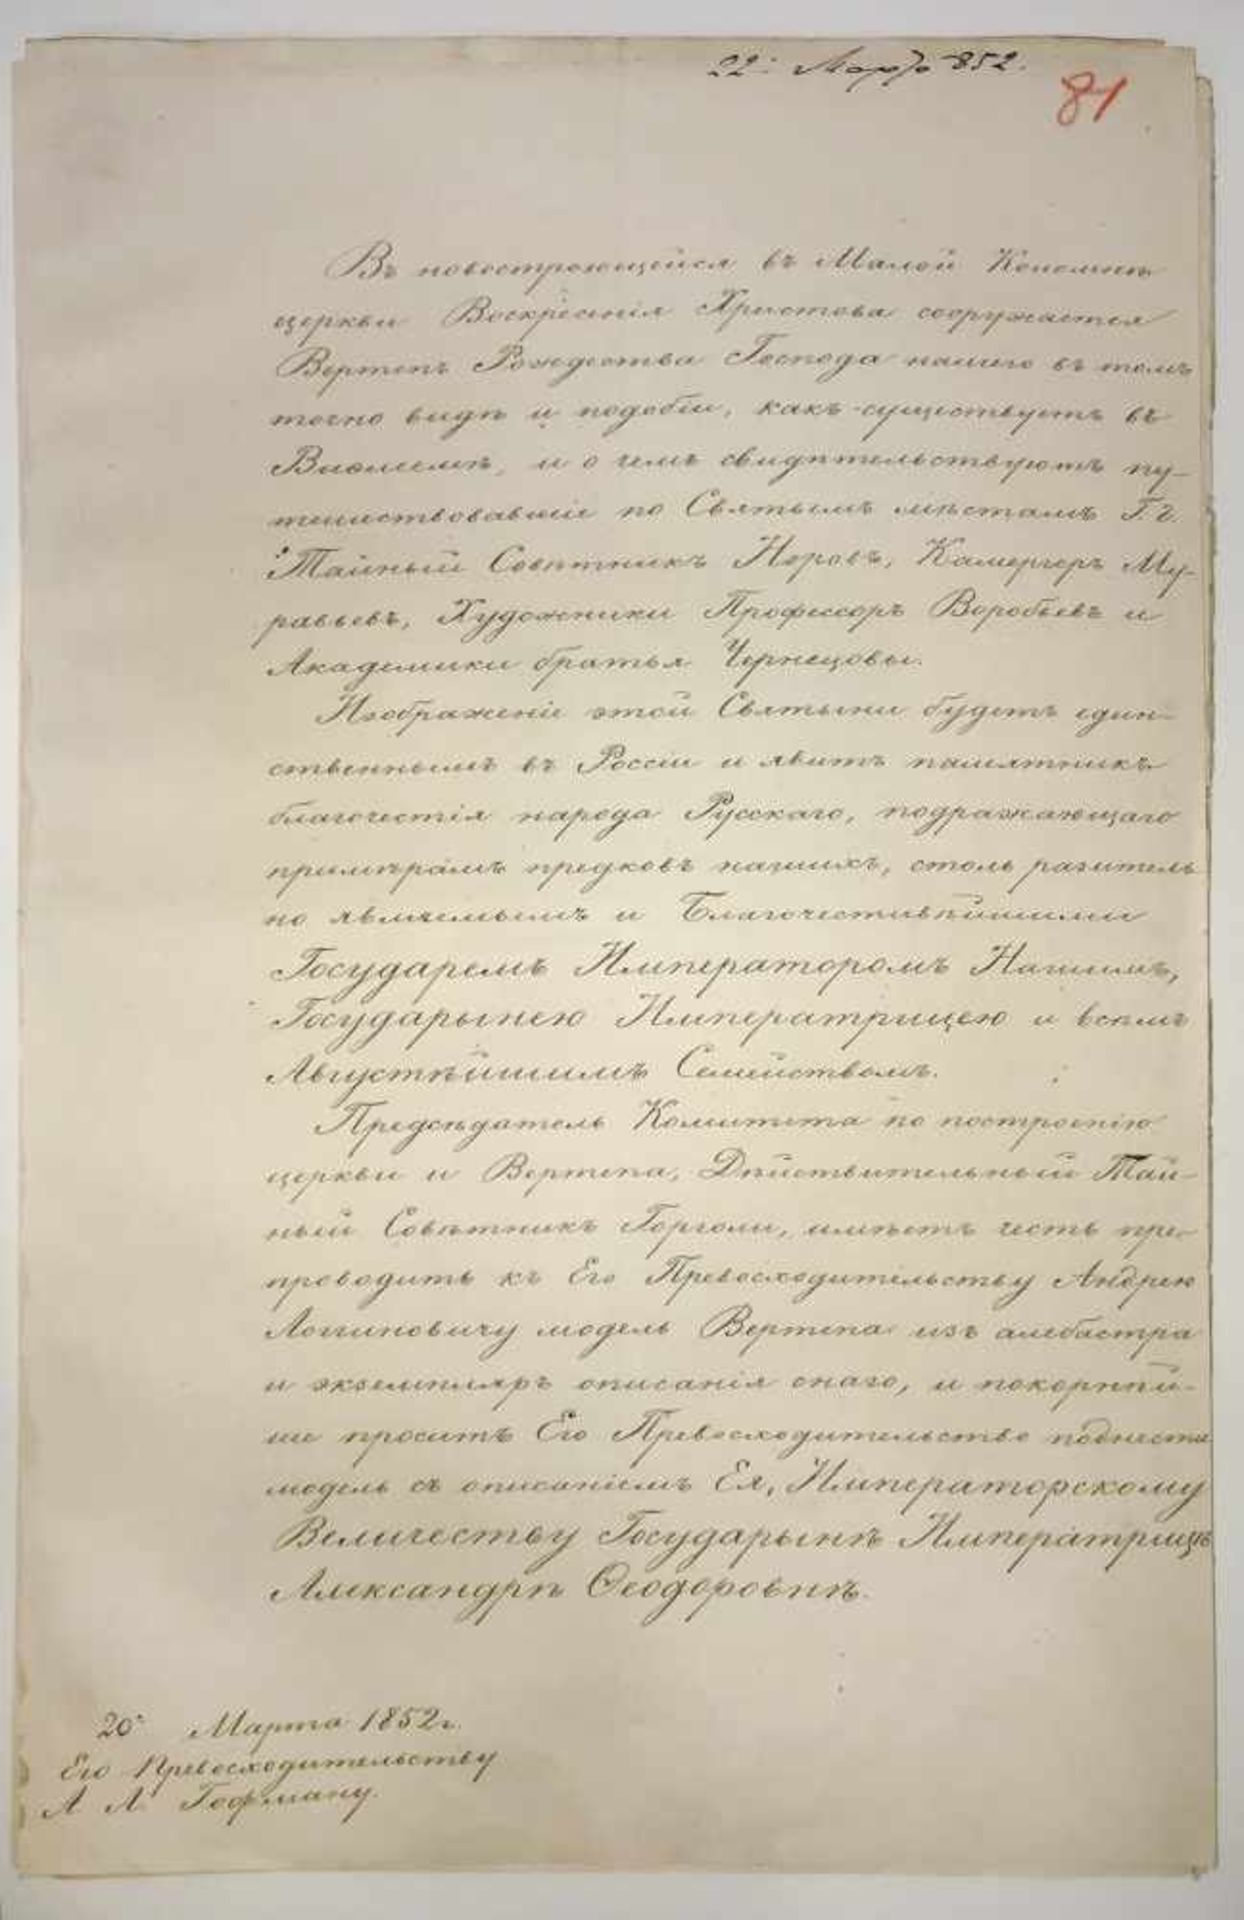 22: Марта 852.
81
Въ новостроющейся въ Малой Коломнѣ
церкви Воскресенія Христова сооружается
Вертепъ Рождества Господа нашего въ томъ
точно видѣ и подобіи, какъ существуетъ въ
Виѳлеемѣ, и о чемъ свидѣтельствуютъ пу-
тешествовавшіе по Святымъ мѣстамъ Г.г.
Тайный Совѣтникъ Норовъ, Камергеръ Му-
равьевъ, Художники Профессоръ Воробьевъ и
Академики братья Чернецовы.
Изображеніе этой Святыни будетъ един-
ственнымъ въ Россіи и явитъ памятникъ
благочестія народа Русскаго, подражающаго
примѣрамъ предковъ нашихъ, столь разитель
но являемымъ и Благочестивѣйшими
Государемъ Императоромъ Нашимъ,
Государынею Императрицею и всѣмъ
Августѣйшимъ Семействомъ.
Предсѣдатель Комитета по построенію
церкви и Вертепа, Дѣйствительный Тай-
ный Совѣтникъ Горголи, имѣетъ честь пре-
проводить къ Его Превосходительству Андрею
Логиновичу модель Вертепа изъ алебастра
и экземпляръ описанія онаго, и покорнѣй-
ше проситъ Его Превосходительство поднести
модель съ описаніемъ Ея, Императорскому
Величеству Государынѣ Императрицѣ
Александрѣ Ѳеодоровнѣ.
20 Марта 1852 г.
Его Превосходительству
А Л Гофману.